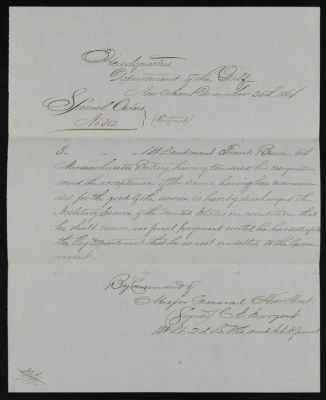 Headquarters
Department of the Gulf
New Orleans December 30th 1864
Special Orders
No 352 } (Extract)
I 1st Lieutenant Frank Bruce 6th
Massachusetts Battery, having tendered his resignation
and the acceptance of the same having been recommen-
ded for the good of the service, is hereby discharged the
Military Service of the United States on condition that
he shall receive no final payment until he has satisfied
the Pay Department that he is not indebted to the Govern-
ment
By Command of
Major General Hurlbut
Signed C. S. Sargent
1st Lt 2d La Vols and